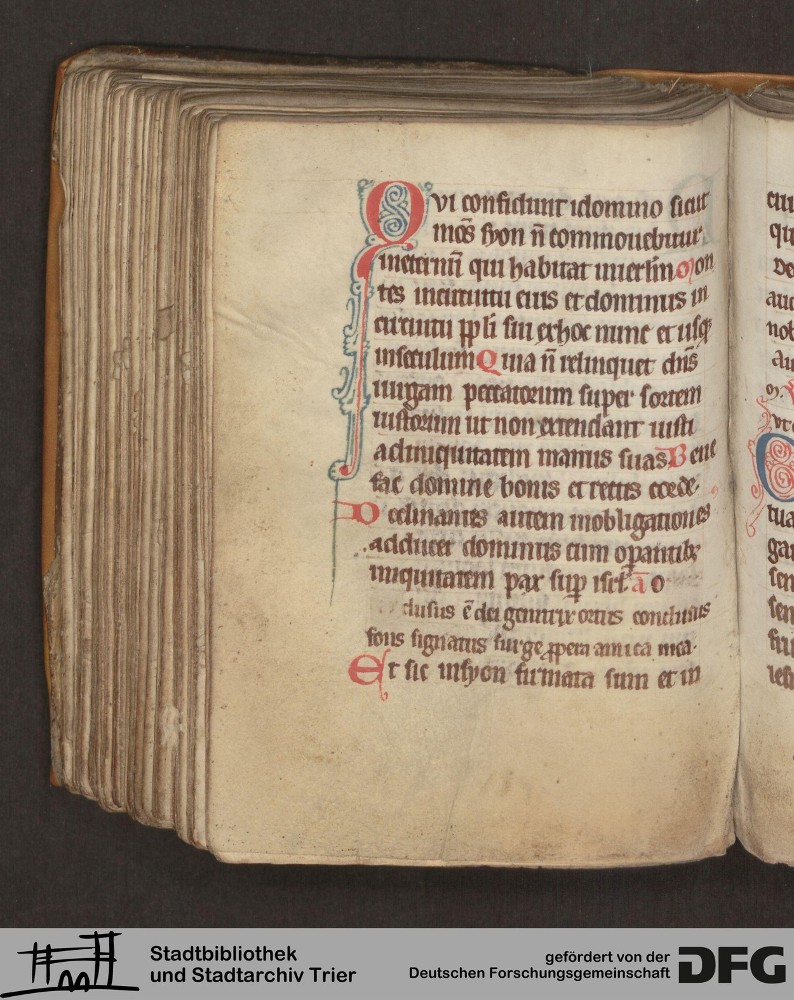 Qvi confidunt idomino sicut
mōs syon n̄ commouebitur
ineternū qui habitat inierlm̄ Mon
tes incircuitu eius et dominus in
circuitu ppl̄i sui exhoc nunc et usq;
inseculum Quia n̄ relinquet dn̄s
uirgam peccatorum super sortem
iustorum ut non extendant iusti
adiniquitatem manus suas Bene
fac domine bonis et rectis corde.
Declinantes autem inobligationes
adducet dominus cum opantib;
iniquitatem pax sup isrl̄ a o
clusus ē dei genitrix ortus conclusus
fons signatus surge ppera amica mea.
Et sic insyon firmata sum et in
Stadtbibliothek
und Stadtarchiv Trier
gefördert von der
Deutschen Forschungsgemeinschaft
DFG